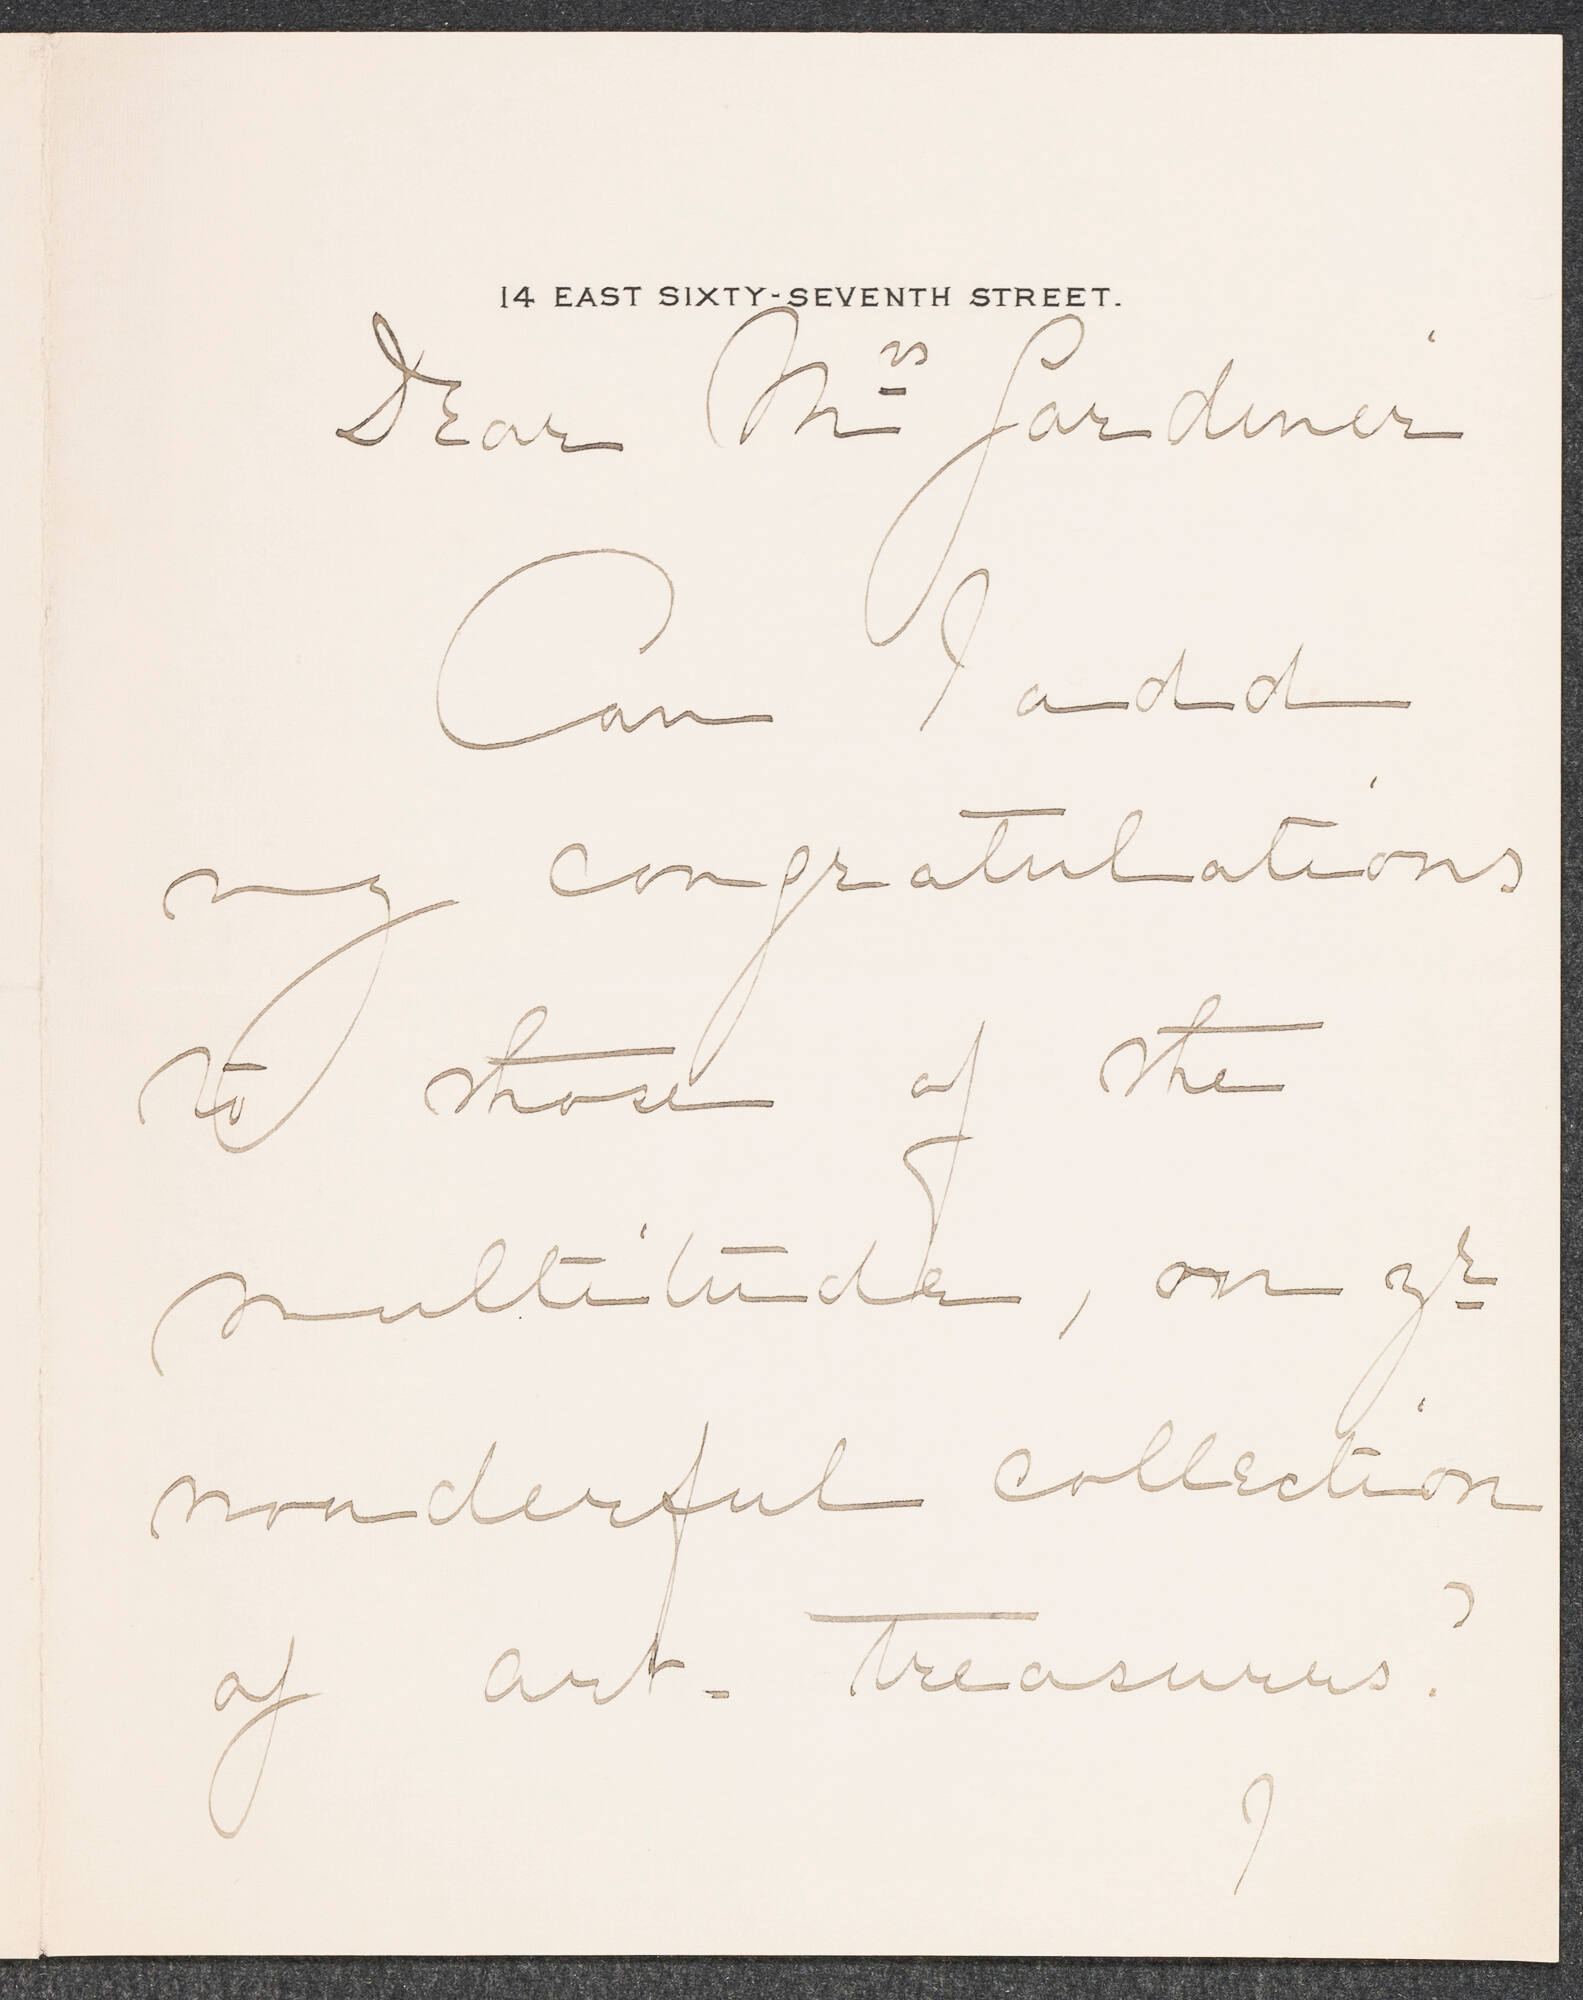 14 EAST SIXTY-SEVENTH STREET.
Dear Mrs Gardiner
Can I add
my congratulations
to those of the
multitude, on yr
wonderful collection
of art-treasures?
I